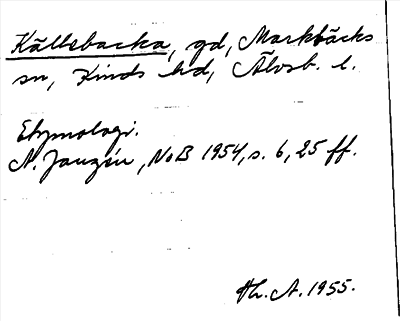 Källsbacka, gd, Markbäcks
sn, Kinds hd, Älvsb. l.
Etymologi.
A. Janzén, NoB 1954, s. 6, 25 ff.
Hz. A. 1955.